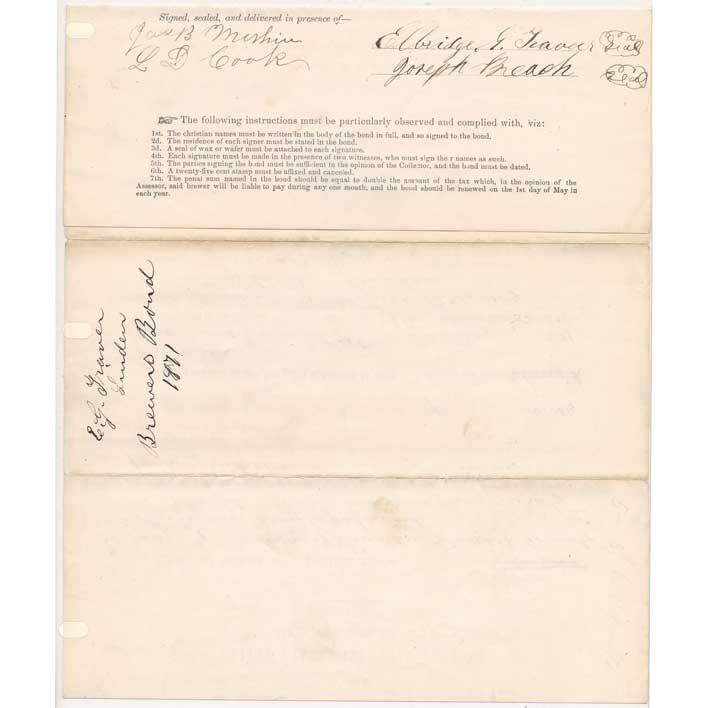 Signed, sealed, and delivered in presence of—
Jas B
L D Cook
Elbridge G. Traver Seal
Joseph Breach Seal
☞ The following instructions must be particularly observed and complied with, viz:
1st. The christian names must be written in the body of the bond in full, and so signed to the bond.
2d. The residence of each signer must be stated in the bond.
3d. A seal of wax or wafer must be attached to each signature.
4th. Each signature must be made in the presence of two witnesses, who must sign the r names as such.
5th. The parties signing the bond must be sufficient in the opinion of the Collector, and the bond must be dated.
6th. A twenty-five cent stamp must be affixed and canceled.
7th. The penal sum named in the bond should be equal to double the amount of the tax which, in the opinion of the
Assessor, said brewer will be liable to pay during any one month, and the bond should be renewed on the 1st day of May in
each year.
E.G. Traver
Linden
Brewers Bond
1871